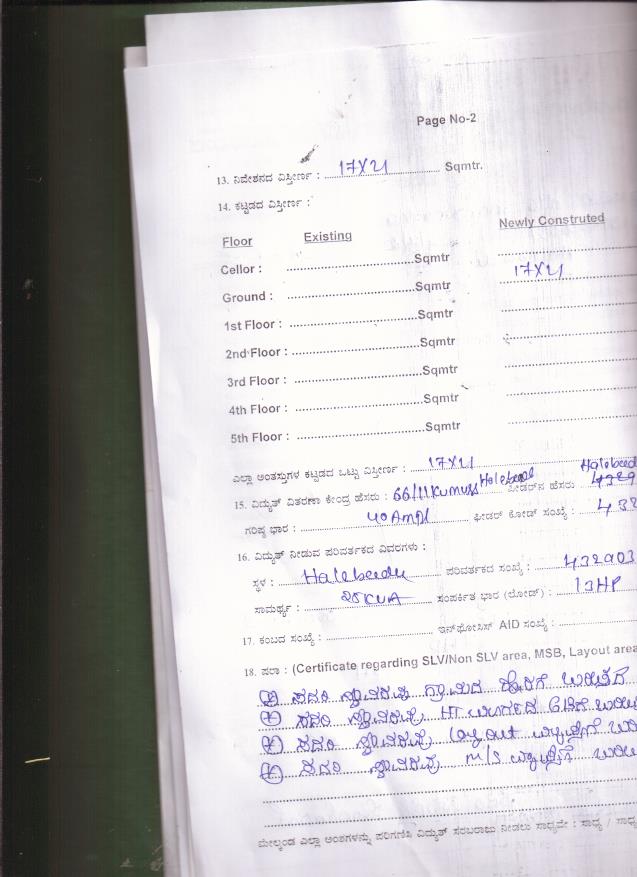 Page No-2
13. ನಿವೇಶನದ ವಿಸ್ತೀರ್ಣ : 17X21 Sqmtr.
14. ಕಟ್ಟಡದ ವಿಸ್ತೀರ್ಣ :
Floor Existing Newly Construted
Cellor : Sqmtr
Ground : Sqmtr 17X21
1st Floor : Sqmtr
2nd Floor : Sqmtr
3rd Floor : Sqmtr
4th Floor : Sqmtr
5th Floor : Sqmtr
ಎಲ್ಲಾ ಅಂತಸ್ತುಗಳ ಕಟ್ಟಡದ ಒಟ್ಟು ವಿಸ್ತೀರ್ಣ : 17X21
15. ವಿದ್ಯುತ್ ವಿತರಣಾ ಕೇಂದ್ರ ಹೆಸರು : 66/11 Halebeed ಫೀಡರ್‌ನ ಹೆಸರು Halebeed
ಗರಿಷ್ಠ ಭಾರ : 40 ಫೀಡರ್ ಕೋಡ್ ಸಂಖ್ಯೆ : 432
16. ವಿದ್ಯುತ್ ನೀಡುವ ಪರಿವರ್ತಕದ ವಿವರಗಳು :
ಸ್ಥಳ : Halebeedu ಪರಿವರ್ತಕದ ಸಂಖ್ಯೆ : 432903
ಸಾಮರ್ಥ್ಯ : 25KVA ಸಂಪರ್ಕಿತ ಭಾರ (ಲೋಡ್) : 13HP
17. ಕಂಬದ ಸಂಖ್ಯೆ : ಇನ್‌ಫೋಸಿಸ್ AID ಸಂಖ್ಯೆ :
18. ಷರಾ : (Certificate regarding SLV/Non SLV area, MSB, Layout area
ಸದರಿ ಸ್ಥಾವರವು ಗ್ರಾಮದ
ಸದರಿ ಸ್ಥಾವರವು HT
ಸದರಿ ಸ್ಥಾವರವು Layout
ಸದರಿ ಸ್ಥಾವರವು M/S
ಮೇಲ್ಕಂಡ ಎಲ್ಲಾ ಅಂಶಗಳನ್ನು ಪರಿಗಣಿಸಿ ವಿದ್ಯುತ್ ಸರಬರಾಜು ನೀಡಲು ಸಾಧ್ಯವೇ : ಸಾಧ್ಯ /